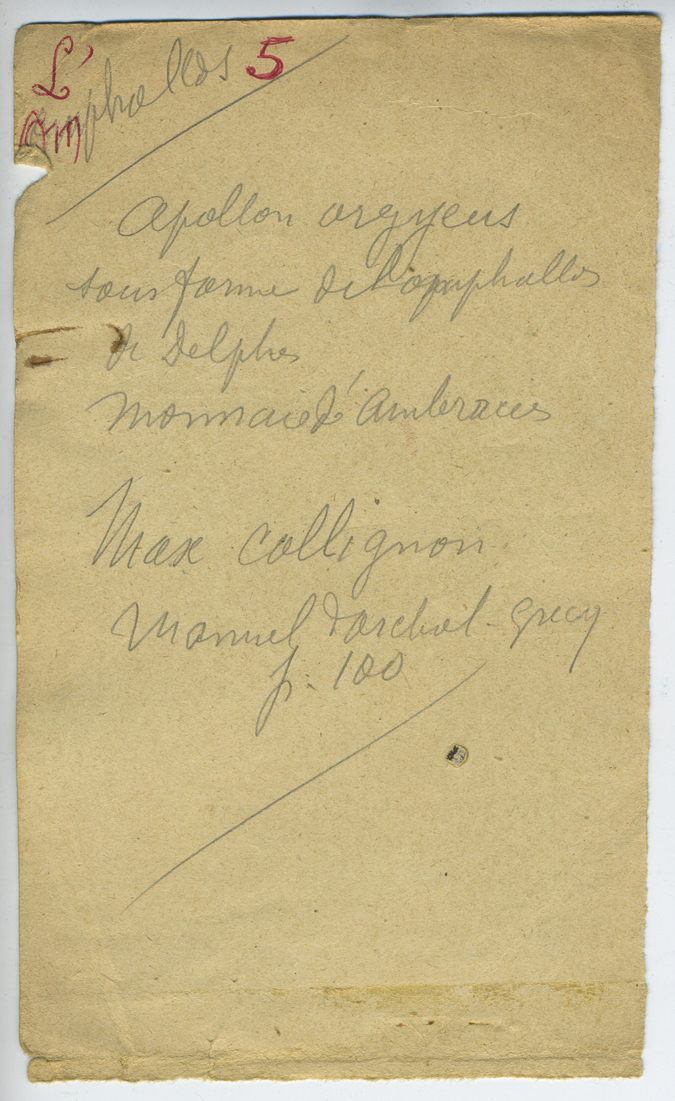 L' omphallos 5
Om
Apollon argyeus
sous forme de l'omphallos
de Delphes
Monnaie d'Ambracies
Max Collignon
Manuel d'archeol. grecq
p. 100